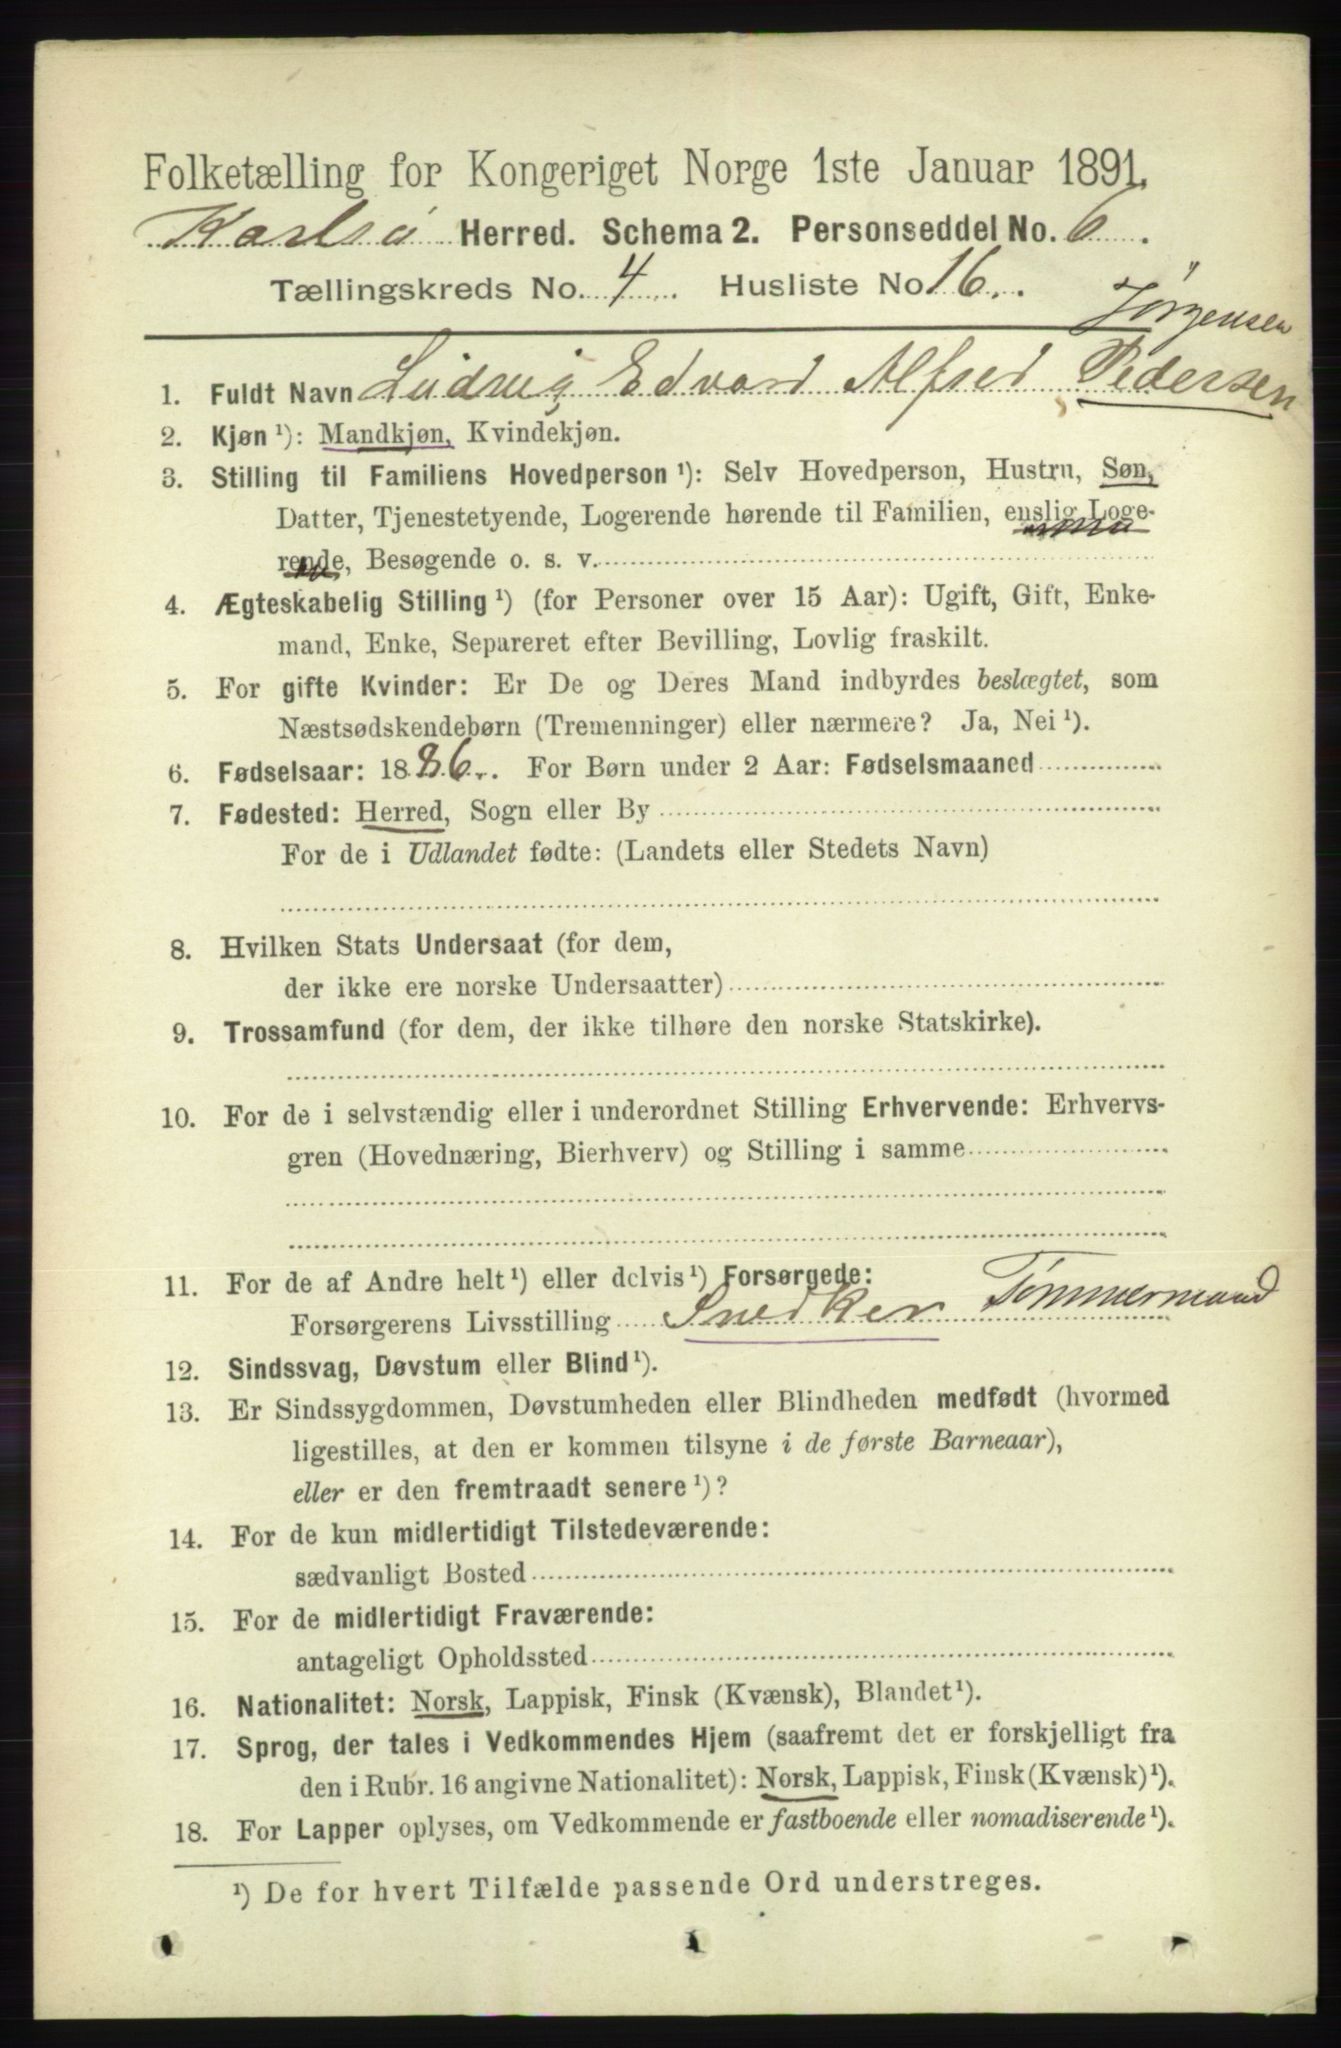 Folketælling for Kongeriget Norge 1ste Januar 1891.
Karlsö Herred. Schema 2. Personseddel No. 6.
Tællingskreds No. 4. Husliste No 16.
Jörgensen
1. Fuldt Navn Ludvig Edvard Alfred Pedersen
2. Kjøn ¹): Mandkjøn, Kvindekjøn.
3. Stilling til Familiens Hovedperson ¹): Selv Hovedperson, Hustru, Søn,
Datter, Tjenestetyende, Logerende hørende til Familien, enslig Loge-
rende, Besøgende o. s. v.
4. Ægteskabelig Stilling ¹) (for Personer over 15 Aar): Ugift, Gift, Enke-
mand, Enke, Separeret efter Bevilling, Lovlig fraskilt.
5. For gifte Kvinder: Er De og Deres Mand indbyrdes beslægtet, som
Næstsødskendebørn (Tremenninger) eller nærmere? Ja, Nei ¹).
6. Fødselsaar: 1886. For Børn under 2 Aar: Fødselsmaaned
7. Fødested: Herred, Sogn eller By
For de i Udlandet fødte: (Landets eller Stedets Navn)
8. Hvilken Stats Undersaat (for dem,
der ikke ere norske Undersaatter)
9. Trossamfund (for dem, der ikke tilhøre den norske Statskirke).
10. For de i selvstændig eller i underordnet Stilling Erhvervende: Erhvervs-
gren (Hovednæring, Bierhverv) og Stilling i samme
11. For de af Andre helt ¹) eller delvis ¹) Forsørgede:
Forsørgerens Livsstilling Snedker Tømmermand
12. Sindssvag, Døvstum eller Blind ¹).
13. Er Sindssygdommen, Døvstumheden eller Blindheden medfødt (hvormed
ligestilles, at den er kommen tilsyne i de første Barneaar),
eller er den fremtraadt senere ¹)?
14. For de kun midlertidigt Tilstedeværende:
sædvanligt Bosted
15. For de midlertidigt Fraværende:
antageligt Opholdssted
16. Nationalitet: Norsk, Lappisk, Finsk (Kvænsk), Blandet ¹).
17. Sprog, der tales i Vedkommendes Hjem (saafremt det er forskjelligt fra
den i Rubr. 16 angivne Nationalitet): Norsk, Lappisk, Finsk (Kvænsk) ¹).
18. For Lapper oplyses, om Vedkommende er fastboende eller nomadiserende ¹).
¹) De for hvert Tilfælde passende Ord understreges.